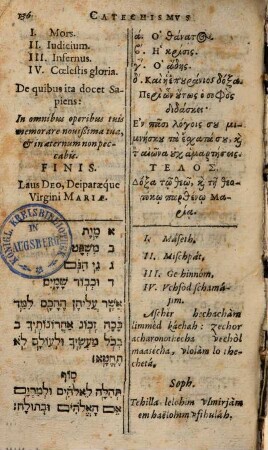 136 CATECHISMVS
I. Mors.
II. Iudicium.
III. Infernus.
IV. Cœlestis gloria.
De quibus ita docet Sa-
piens:
In omnibus operibus tuis
memorare novissima tua,
& in æternum non pec-
cabis.
FINIS.
Laus DEO, Deiparæque
Virgini MARIÆ.
α. Ὁ θάνατος.
ς. Ἡ κρίσις.
γ. Ὁ ᾅδης.
δ. Καὶ ἡ ἐπουράνιος δόξα.
Περὶ ὧν οὕτως ὁ σοφὸς
διδάσκει.
Ἐν πᾶσι λόγοις σου μι-
μνήσκου τὰ ἔσχατά σου, κ̀
εἰς τ̀ αἰῶνα οὐχ ἁμαρτήσεις.
ΤΕΛΟΣ.
Δόξα τῷ θεῷ, κ̀ τῇ θεο-
τόκῳ παρθένῳ Μα-
ρίᾳ.
א מָוֶת
ב מִשְׁפָּט
ג גֵּי הִנֹּם
ד וּכְבוֹד שָׁמַיִם
אֲשֶׁר עֲלֵיהֶן הֶחָכָם לִמֵּד
כָּכָה זְכוֹר אַחֲרוֹנוֹתֶיךָ בְּ
כָל מַעֲשֶׂיךָ וּלְעוֹלָם לֹא
תֶחֱטָא׃
סוֹף
תְּהִלָּה לֵאלֹהִים וּלְמִרְיָם
אֵם הָאֱלֹהִים וּבְתוּלָה׃
I. Máseth.
II. Mischpát,
III. Ge hinnom,
IV. Vchfod schamá-
jim.
Aschir hechachàm
limmèd cáchah: zechor
acharonothecha vechol
maasecha, vlolàm lo the-
cheta.
Soph.
Tehilla lelohim vlmirjàm
em haëlohim vfthulàh.
KÖNIGL. KREISBIBLIOTHEK
IN
AUGSBURG